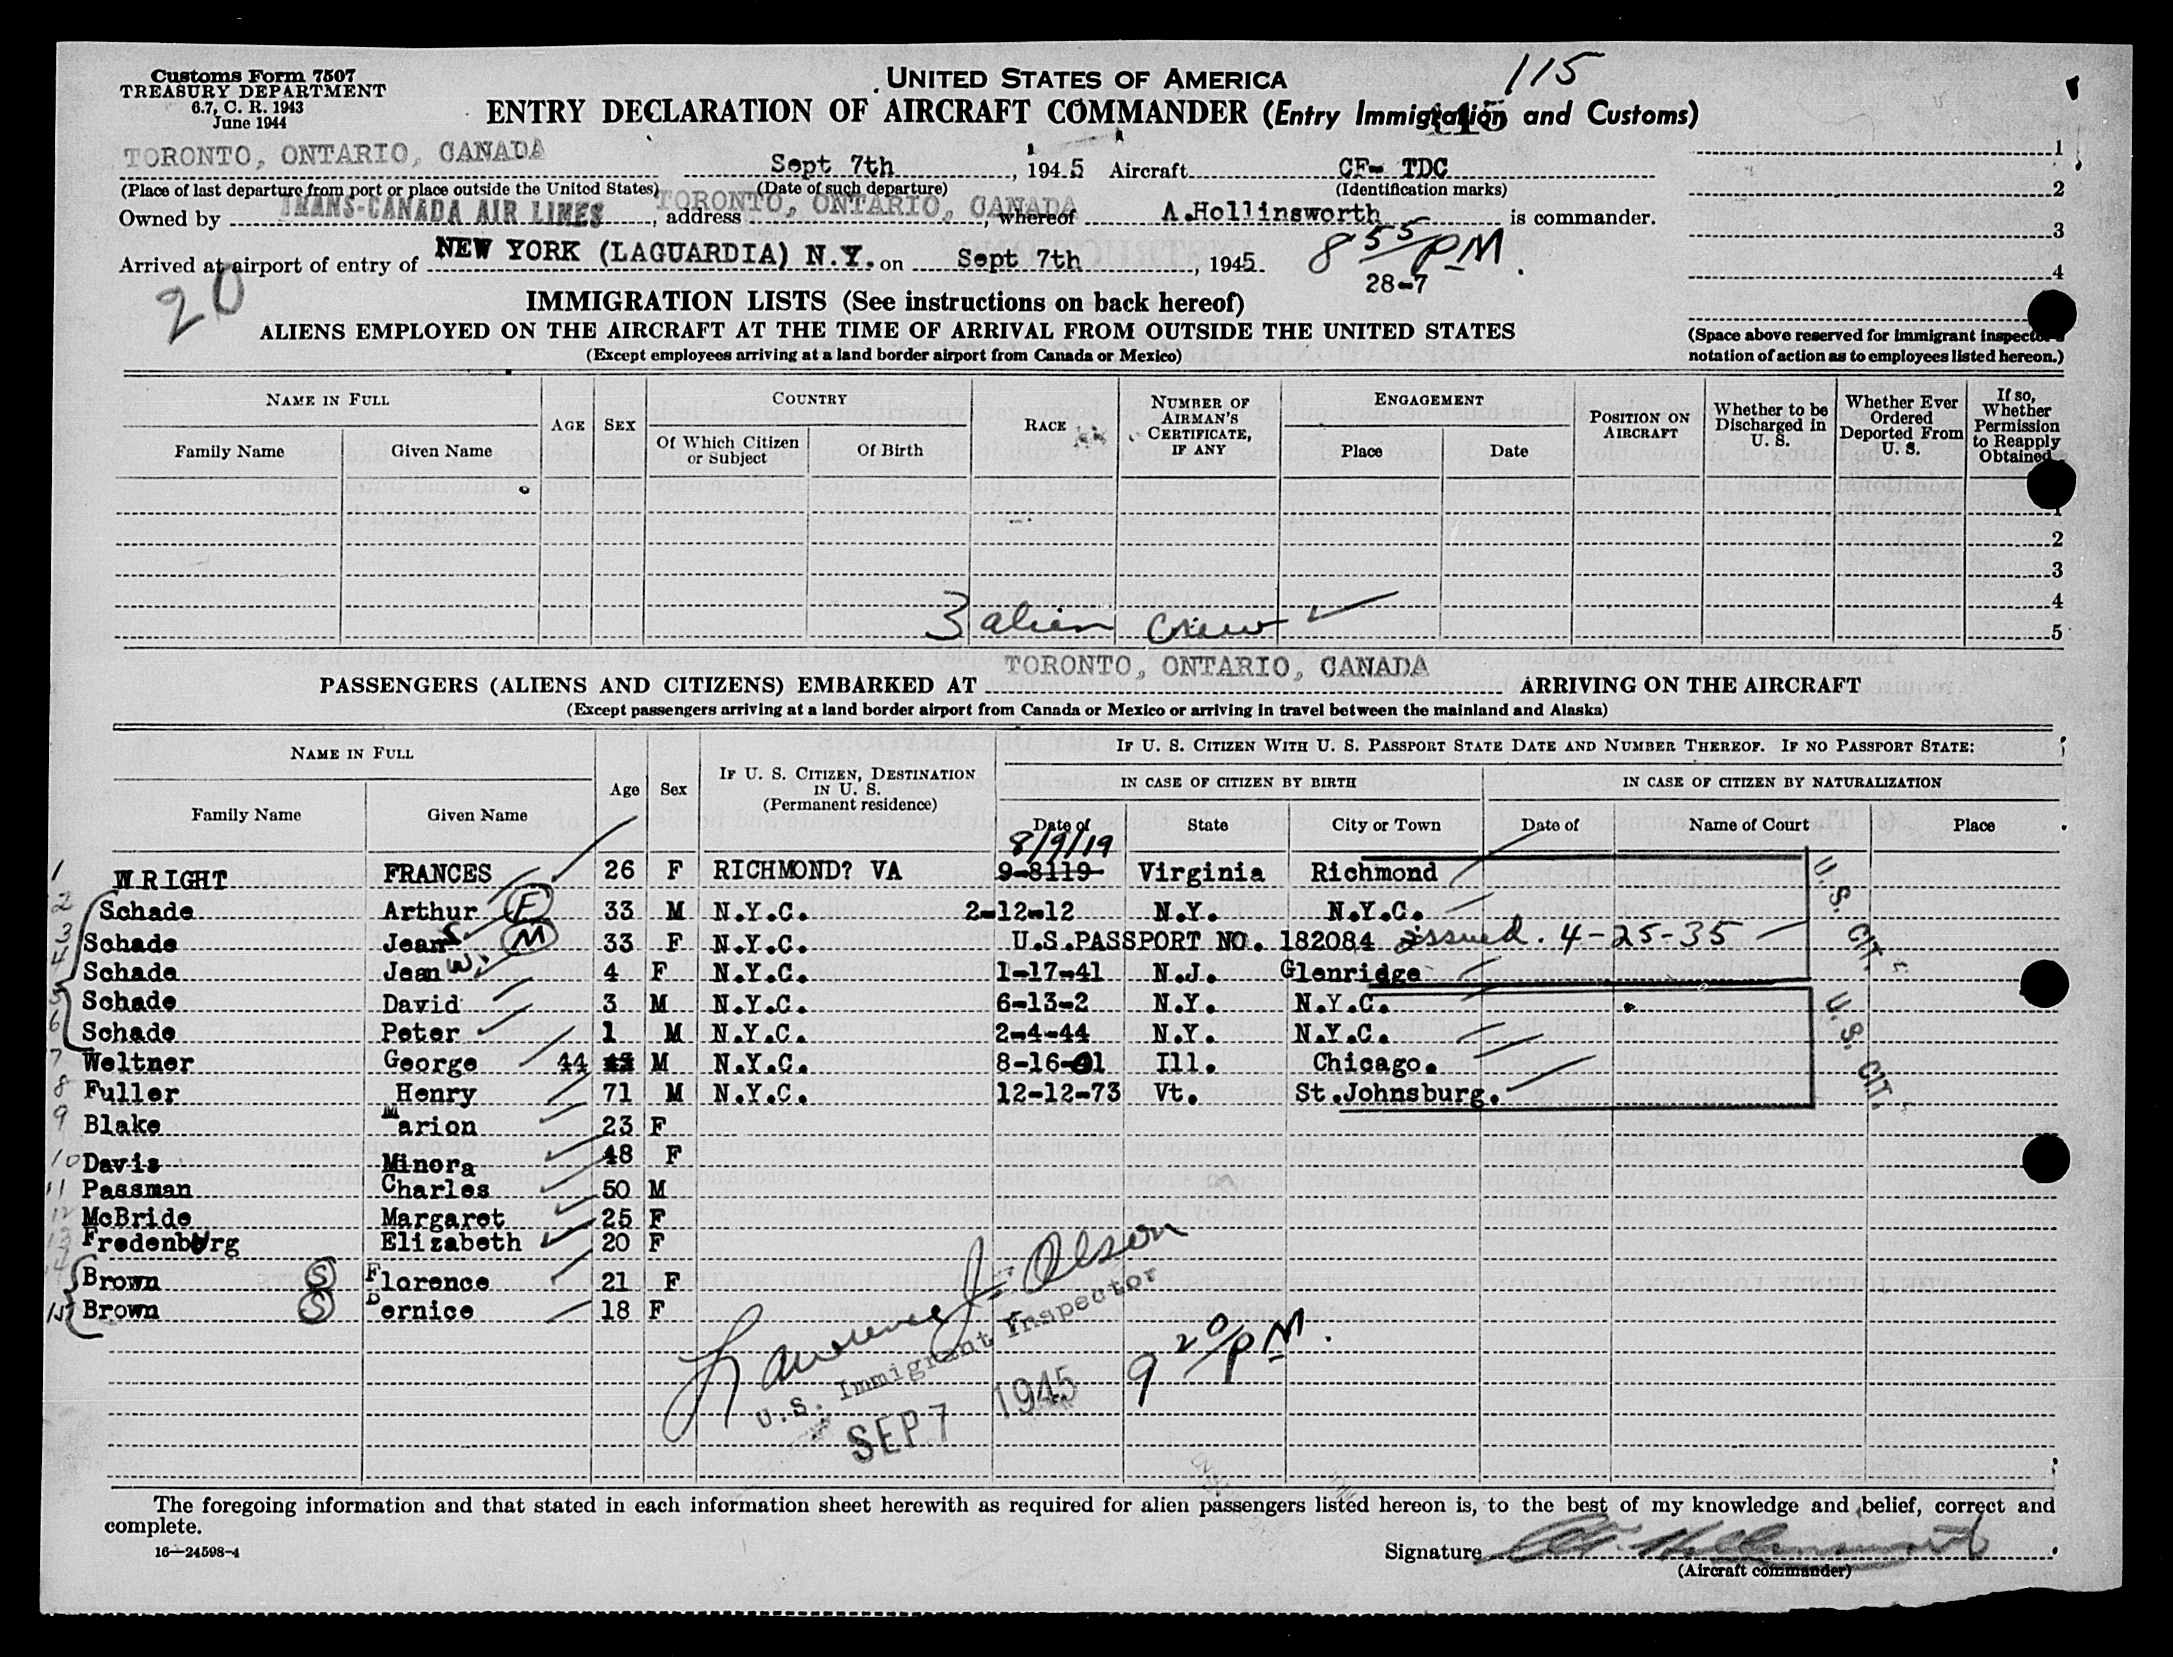 Customs Form 7507
TREASURY DEPARTMENT
6.7, C. R. 1943
June 1944
UNITED STATES OF AMERICA
115
ENTRY DECLARATION OF AIRCRAFT COMMANDER (Entry Immigration and Customs)
115
TORONTO, ONTARIO, CANADA Sept 7th, 1945 Aircraft CF- TDC
(Place of last departure from port or place outside the United States) (Date of such departure) (Identification marks)
Owned by TRANS-CANADA AIR LINES, address TORONTO, ONTARIO, CANADA, whereof A.Hollinsworth is commander.
Arrived at airport of entry of NEW YORK (LAGUARDIA) N.Y. on Sept 7th, 1945. 8 55/PM.
28-7
20
1
2
3
4
(Space above reserved for immigrant inspector's
notation of action as to employees listed hereon.)
IMMIGRATION LISTS (See instructions on back hereof)
ALIENS EMPLOYED ON THE AIRCRAFT AT THE TIME OF ARRIVAL FROM OUTSIDE THE UNITED STATES
(Except employees arriving at a land border airport from Canada or Mexico)
NAME IN FULL
Family Name Given Name
AGE SEX
COUNTRY
Of Which Citizen or Subject Of Birth
RACE
NUMBER OF AIRMAN'S CERTIFICATE, IF ANY
ENGAGEMENT
Place Date
POSITION ON AIRCRAFT
Whether to be Discharged in U. S.
Whether Ever Ordered Deported From U. S.
If so, Whether Permission to Reapply Obtained
1
2
3
4
5
3 alien crew
PASSENGERS (ALIENS AND CITIZENS) EMBARKED AT TORONTO, ONTARIO, CANADA ARRIVING ON THE AIRCRAFT
(Except passengers arriving at a land border airport from Canada or Mexico or arriving in travel between the mainland and Alaska)
NAME IN FULL
Family Name Given Name
Age Sex
IF U. S. CITIZEN, DESTINATION IN U. S.
(Permanent residence)
IF U. S. CITIZEN WITH U. S. PASSPORT STATE DATE AND NUMBER THEREOF. IF NO PASSPORT STATE:
IN CASE OF CITIZEN BY BIRTH IN CASE OF CITIZEN BY NATURALIZATION
Date of State City or Town Date of Name of Court Place
8/9/19
1 WRIGHT FRANCES 26 F RICHMOND? VA 9-8119 Virginia Richmond
2 Schade Arthur F 33 M N.Y.C. 2-12-12 N.Y. N.Y.C.
3 Schade Jean S. M 33 F N.Y.C. U.S.PASSPORT NO. 182084 issued. 4-25-35
4 Schade Jean W. 4 F N.Y.C. 1-17-41 N.J. Glenridge
5 Schade David 3 M N.Y.C. 6-13-2 N.Y. N.Y.C.
6 Schade Peter 1 M N.Y.C. 2-4-44 N.Y. N.Y.C.
7 Weltner George 44 M N.Y.C. 8-16-01 Ill. Chicago.
8 Fuller Henry 71 M N.Y.C. 12-12-73 Vt. St.Johnsburg.
9 Blake Marion 23 F
10 Davis Minora 48 F
11 Passman Charles 50 M
12 McBride Margaret 25 F
13 Fredenburg Elizabeth 20 F
14 Brown S Florence 21 F
15 Brown S Bernice 18 F
U. S. CIT.
U. S. CIT.
Lawrence J. Olson
U.S. Immigrant Inspector
SEP 7 1945
9 20/PM.
The foregoing information and that stated in each information sheet herewith as required for alien passengers listed hereon is, to the best of my knowledge and belief, correct and
complete.
16—24598-4
Signature
(Aircraft commander)